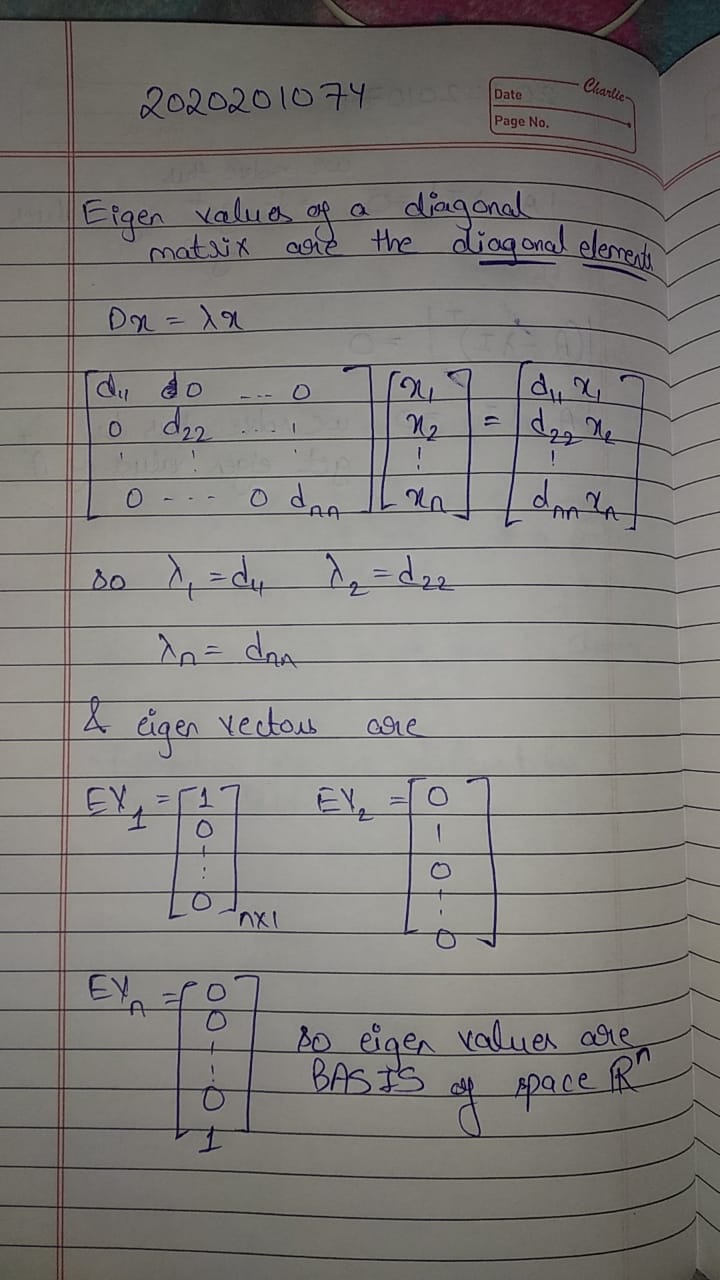 2020201074
Charlie
Date
Page No.
Eigen values of a diagonal
matrix are the diagonal elements
Dx = λx
[d₁₁ 0 ... 0] [x₁] = [d₁₁ x₁]
[0 d₂₂ ... ⋮] [x₂] = [d₂₂ x₂]
[⋮ ⋮ ⋮] [⋮] [⋮]
[0 ... 0 dₙₙ] [xₙ] [dₙₙ xₙ]
so λ₁ = d₁₁ λ₂ = d₂₂
λₙ = dₙₙ
& eigen vectors are
EV₁ = [1 0 ⋮ 0]ₙₓ₁ EV₂ = [0 1 0 ⋮ 0]
EVₙ = [0 0 ⋮ 0 1]
so eigen values are
BASIS of space ℝⁿ